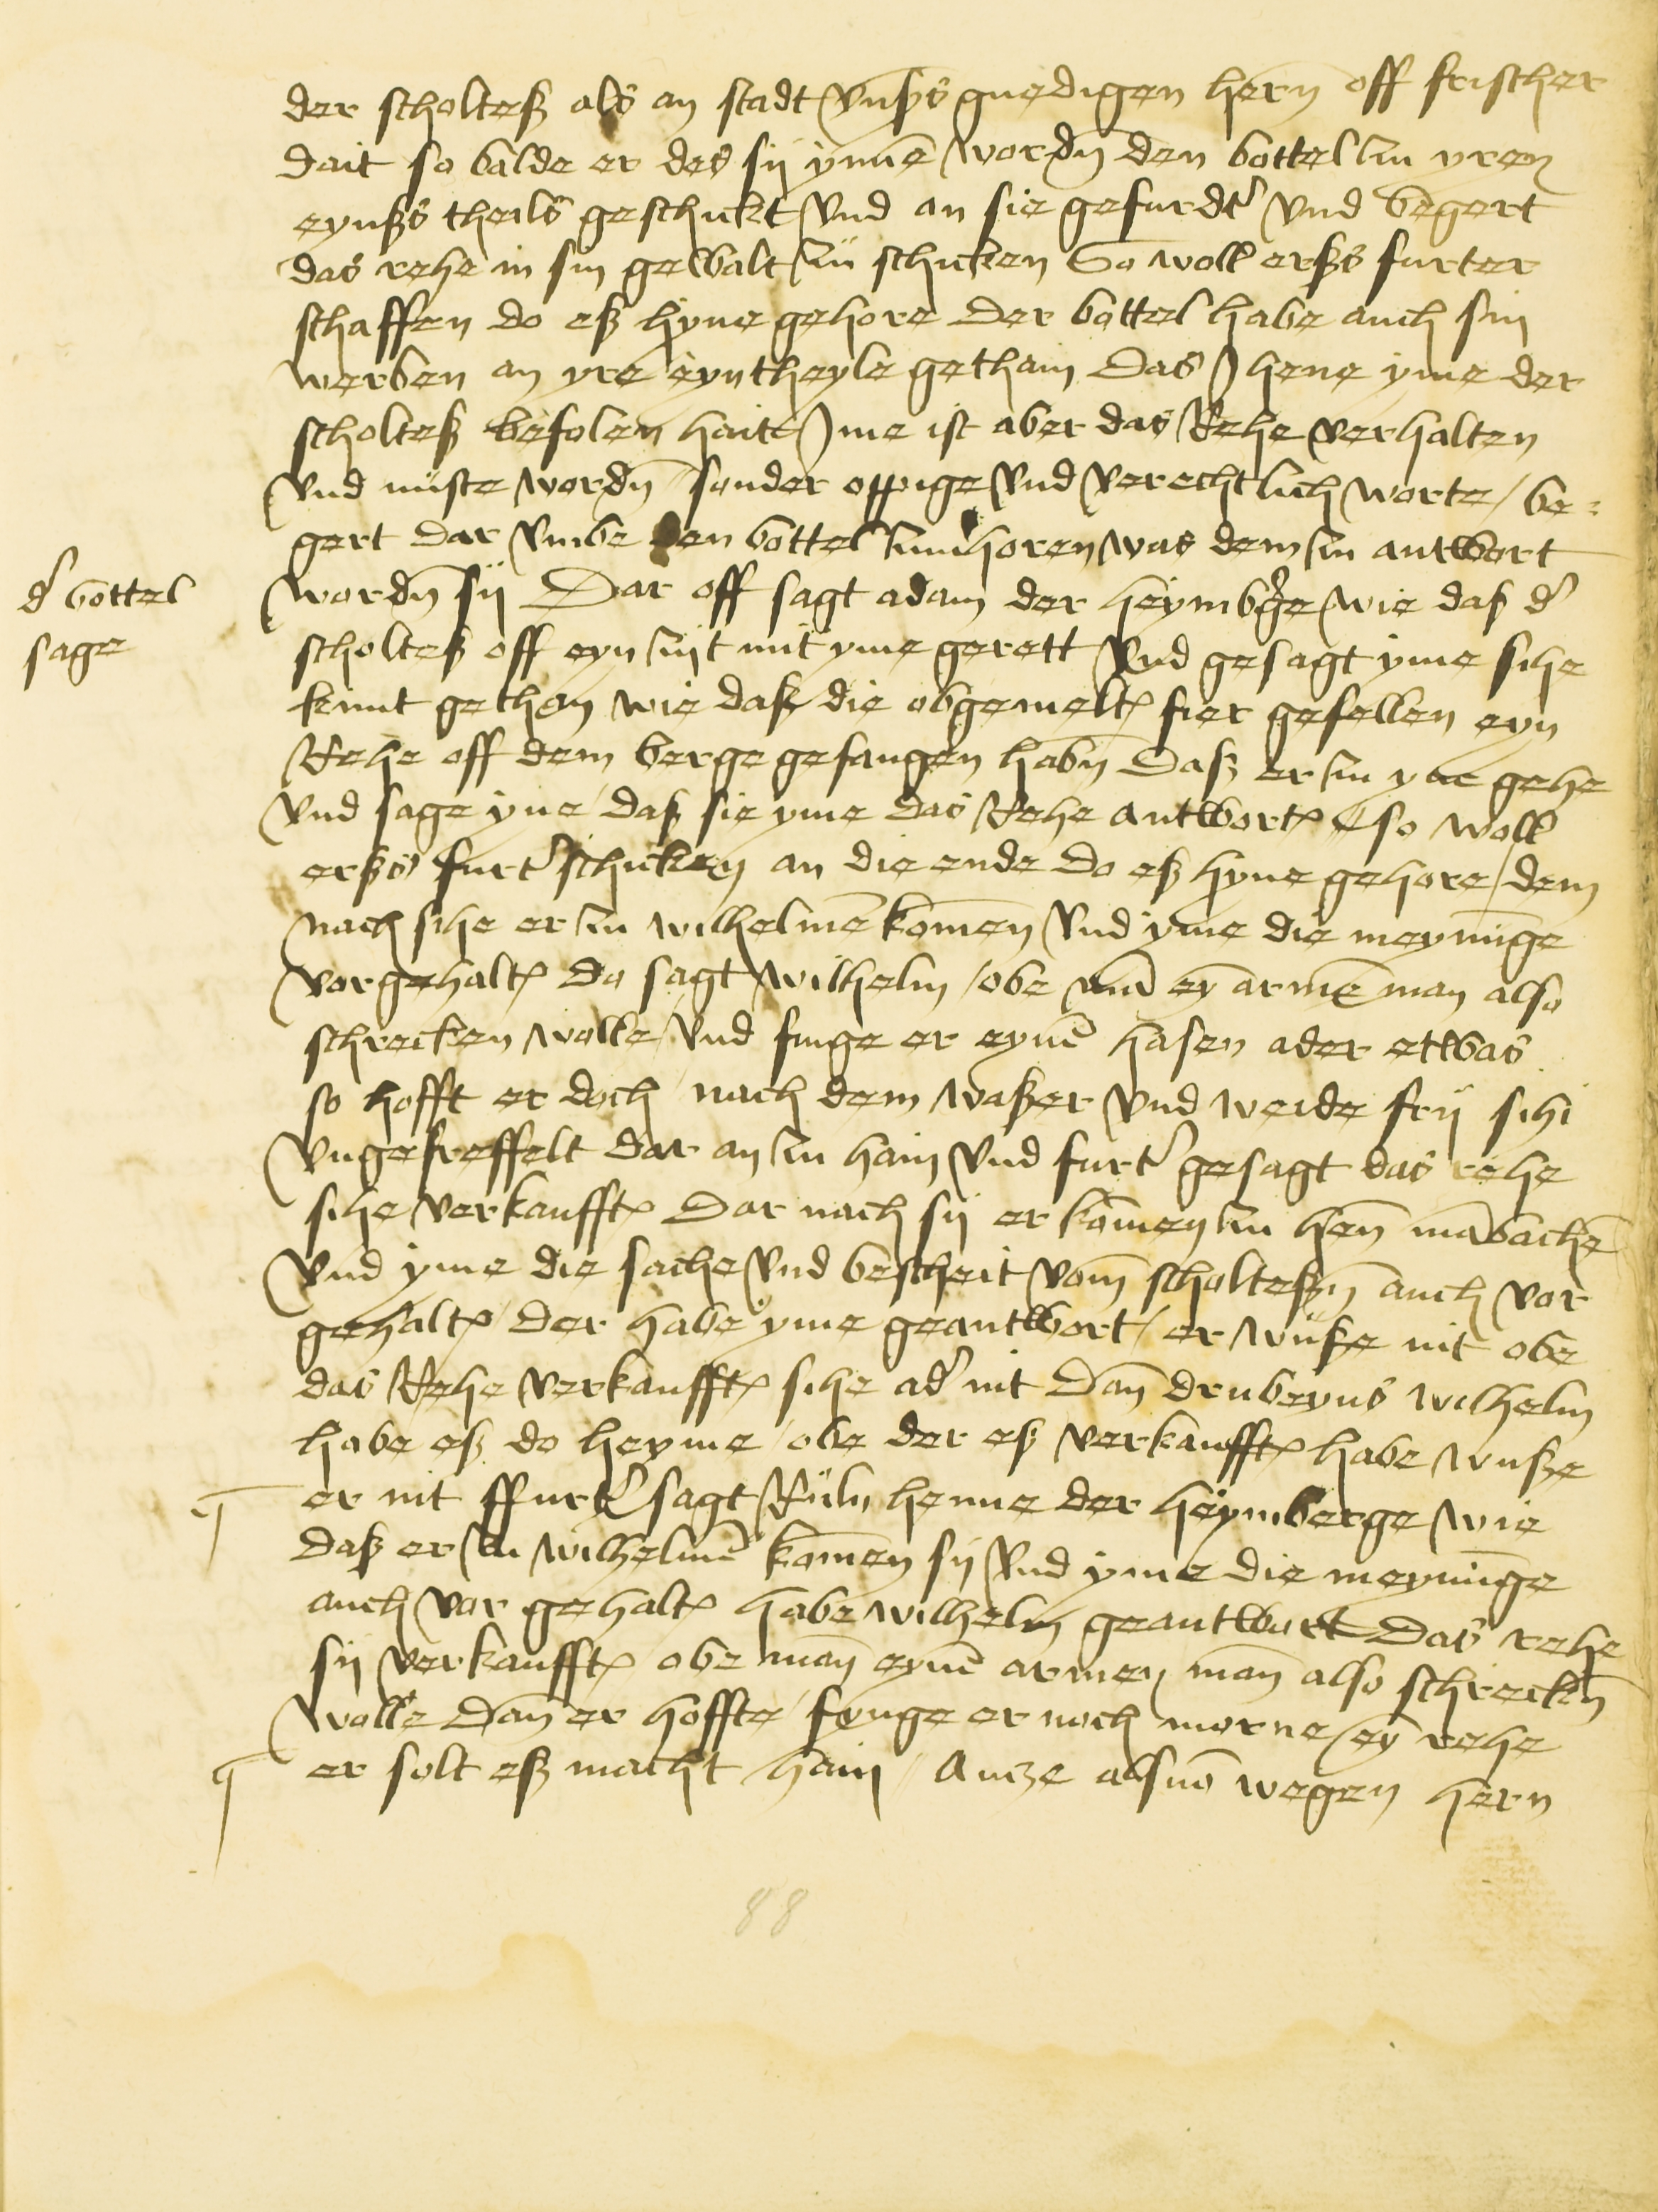 der scholteß als an stadt vnßs gnedigen hern off frischer
dait so balde er des sij ynnē wordn̄ den bottel zu yren
eynßs theils geschickt vnd an sie gefurdt' vnd begert
das rehe in sin gewalt zü schicken So woll erßs furter
schaffen do eß hyne gehore Der bottel habe auch sin
werben an yre eyn theyle gethain Das Jhene yme der
scholteß befolen haitt Jme ist aber das Rehe verhalten
vnd nüste wordn̄ sonder oppige vnd verechtlich worte / be=
gert dar vmbe den bottel zuuerhoren was dem zu antwort
d' bottel
sage
wordn̄ sij Dar off sagt adam der heymb'ge wie daß d'
scholteß off eyn zijt mit yme gerett vnd gesagt yme sihe
kunt gethan wie daß die obgemelt' fier gesellen eyn
Rehe off dem berge gefangen habn̄ Daß er zu yne gehe
vnd sage yne daß sie yme das Rehe antwort' so woll
erßs furt' schicken an die ende do eß hyne gehore / dem
nach sihe er zu wilhelmē komen vnd yme die meynūge
vorgehalt' Do sagt wilhelm / obe mā ey armē man also
schrecken wolle vnd finge er eynē hasen ader etwas
so hofft er doch nach dem waßer vnd weide frij sihe
vngefreffelt dar an zu hain vnd furt' gesagt das rehe
sihe verkaufft' Dar nach sij er komen zu hen̄ mābachē
vnd yme die sache vnd bescheit vom scholteßn̄ auch vor
gehalt' / der habe yme geantwort / er wüße nit obe
das Rehe verkaufft' sihe ad' nit Dan̄ drubeyns wilhelm
habe eß do heyme / obe der eß verkaufft' habe wuße
er nit ffurt' sagt Rüln henne der heymberge wie
daß er zu wilhelmē komen sij vnd yme die meynūge
auch vor gehalt' habe wilhelm geantwort Das rehe
sij verkaufft' obe man̄ eynē armen man̄ also schreckn̄
wolle Dan̄ er hoffte / fynge er noch morne ey rehe
er solt eß macht hain / Antze alßuō wegen hern
88